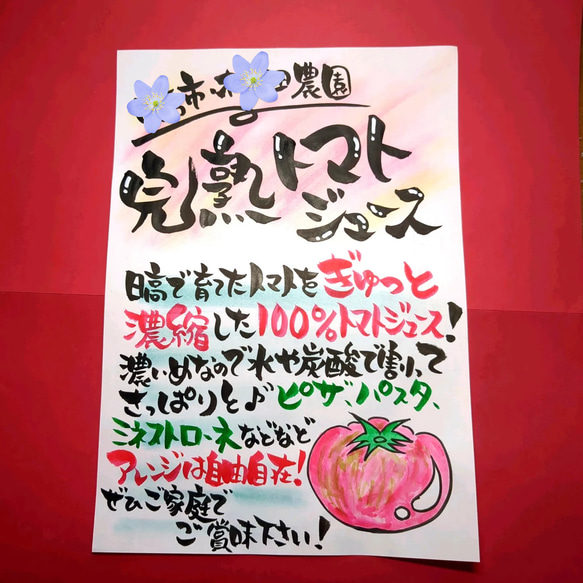 市 農園
完熟トマト
ジュース
日高で育てたトマトをぎゅっと
濃縮した100%トマトジュース!
濃いめなので水や炭酸で割って
さっぱりと♪ピザ、パスタ、
ミネストローネなどなど
アレンジは自由自在!
ぜひご家庭で
ご賞味下さい!